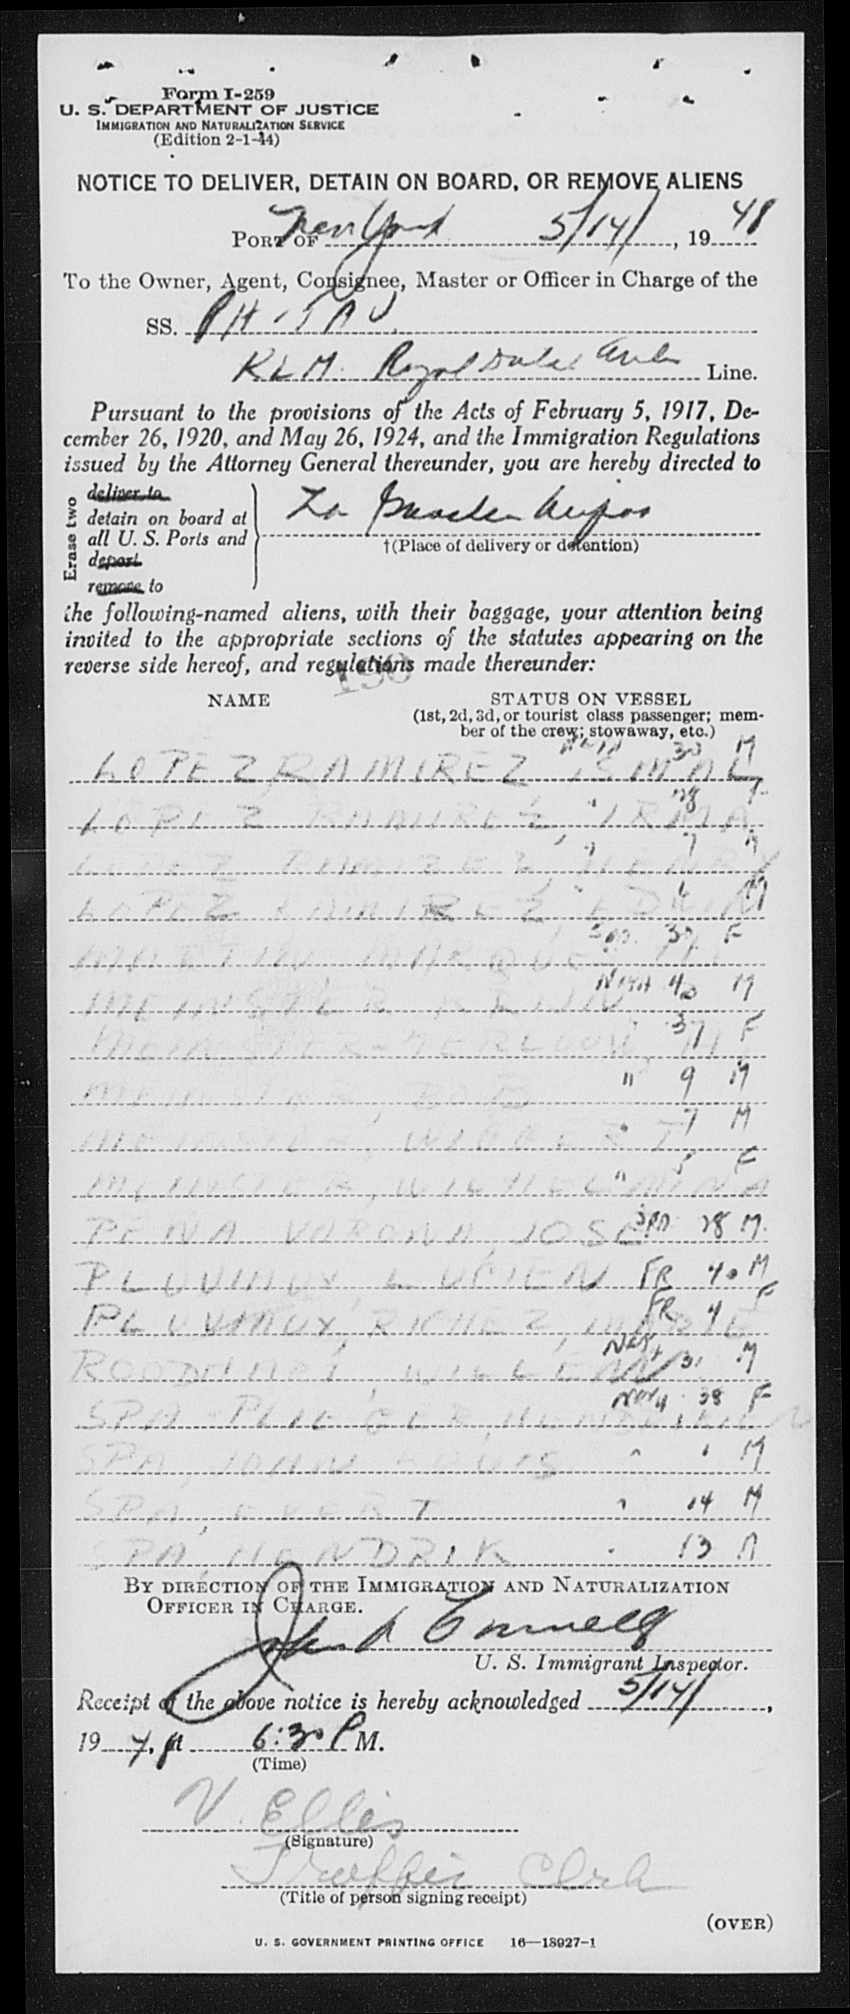 Form I-259
U. S. DEPARTMENT OF JUSTICE
IMMIGRATION AND NATURALIZATION SERVICE
(Edition 2-1-44)
NOTICE TO DELIVER, DETAIN ON BOARD, OR REMOVE ALIENS
PORT OF New York 5/14/, 19 48
To the Owner, Agent, Consignee, Master or Officer in Charge of the
SS. PH-TAU
KLM Royal Dutch Line.
Pursuant to the provisions of the Acts of February 5, 1917, De-
cember 26, 1920, and May 26, 1924, and the Immigration Regulations
issued by the Attorney General thereunder, you are hereby directed to
Erase two
deliver to
detain on board at
all U. S. Ports and
deport
remove to
La
†(Place of delivery or detention)
the following-named aliens, with their baggage, your attention being
invited to the appropriate sections of the statutes appearing on the
reverse side hereof, and regulations made thereunder:
NAME STATUS ON VESSEL
(1st, 2d, 3d, or tourist class passenger; mem-
ber of the crew; stowaway, etc.)
LOPEZ RAMIREZ, ISMAL 33 M
LOPEZ RAMIREZ, IRMA " 28 F
LOPEZ RAMIREZ, HENRY " 7 M
LOPEZ RAMIREZ, EDWIN " M
MARTIN MARQUE F
MEINSTER 40 M
MEINSTER 37 F
MEINSTER, BOB " 9 M
MEINSTER, WIGGERT " 7 M
MEINSTER, WILHELMINA " F
PENA VARONA, JOSE SPA 28 M.
PLUVINUX, LUCIEN FR 40 M
PLUVINUX, RICHEZ, MARIE FR F
ROODHART, WILLEM 31 M
SPA-PLIEGER, 38 F
SPA, JOHN LOUIS " M
SPA, EVERT " 14 M
SPA, HENDRIK 13 M
BY DIRECTION OF THE IMMIGRATION AND NATURALIZATION
OFFICER IN CHARGE.
John
U. S. Immigrant Inspector.
Receipt of the above notice is hereby acknowledged 5/14/,
19 , at 6:30 P M.
(Time)
V. Ellis
(Signature)
Traffic Clerk
(Title of person signing receipt)
(OVER)
U. S. GOVERNMENT PRINTING OFFICE 16—18927-1